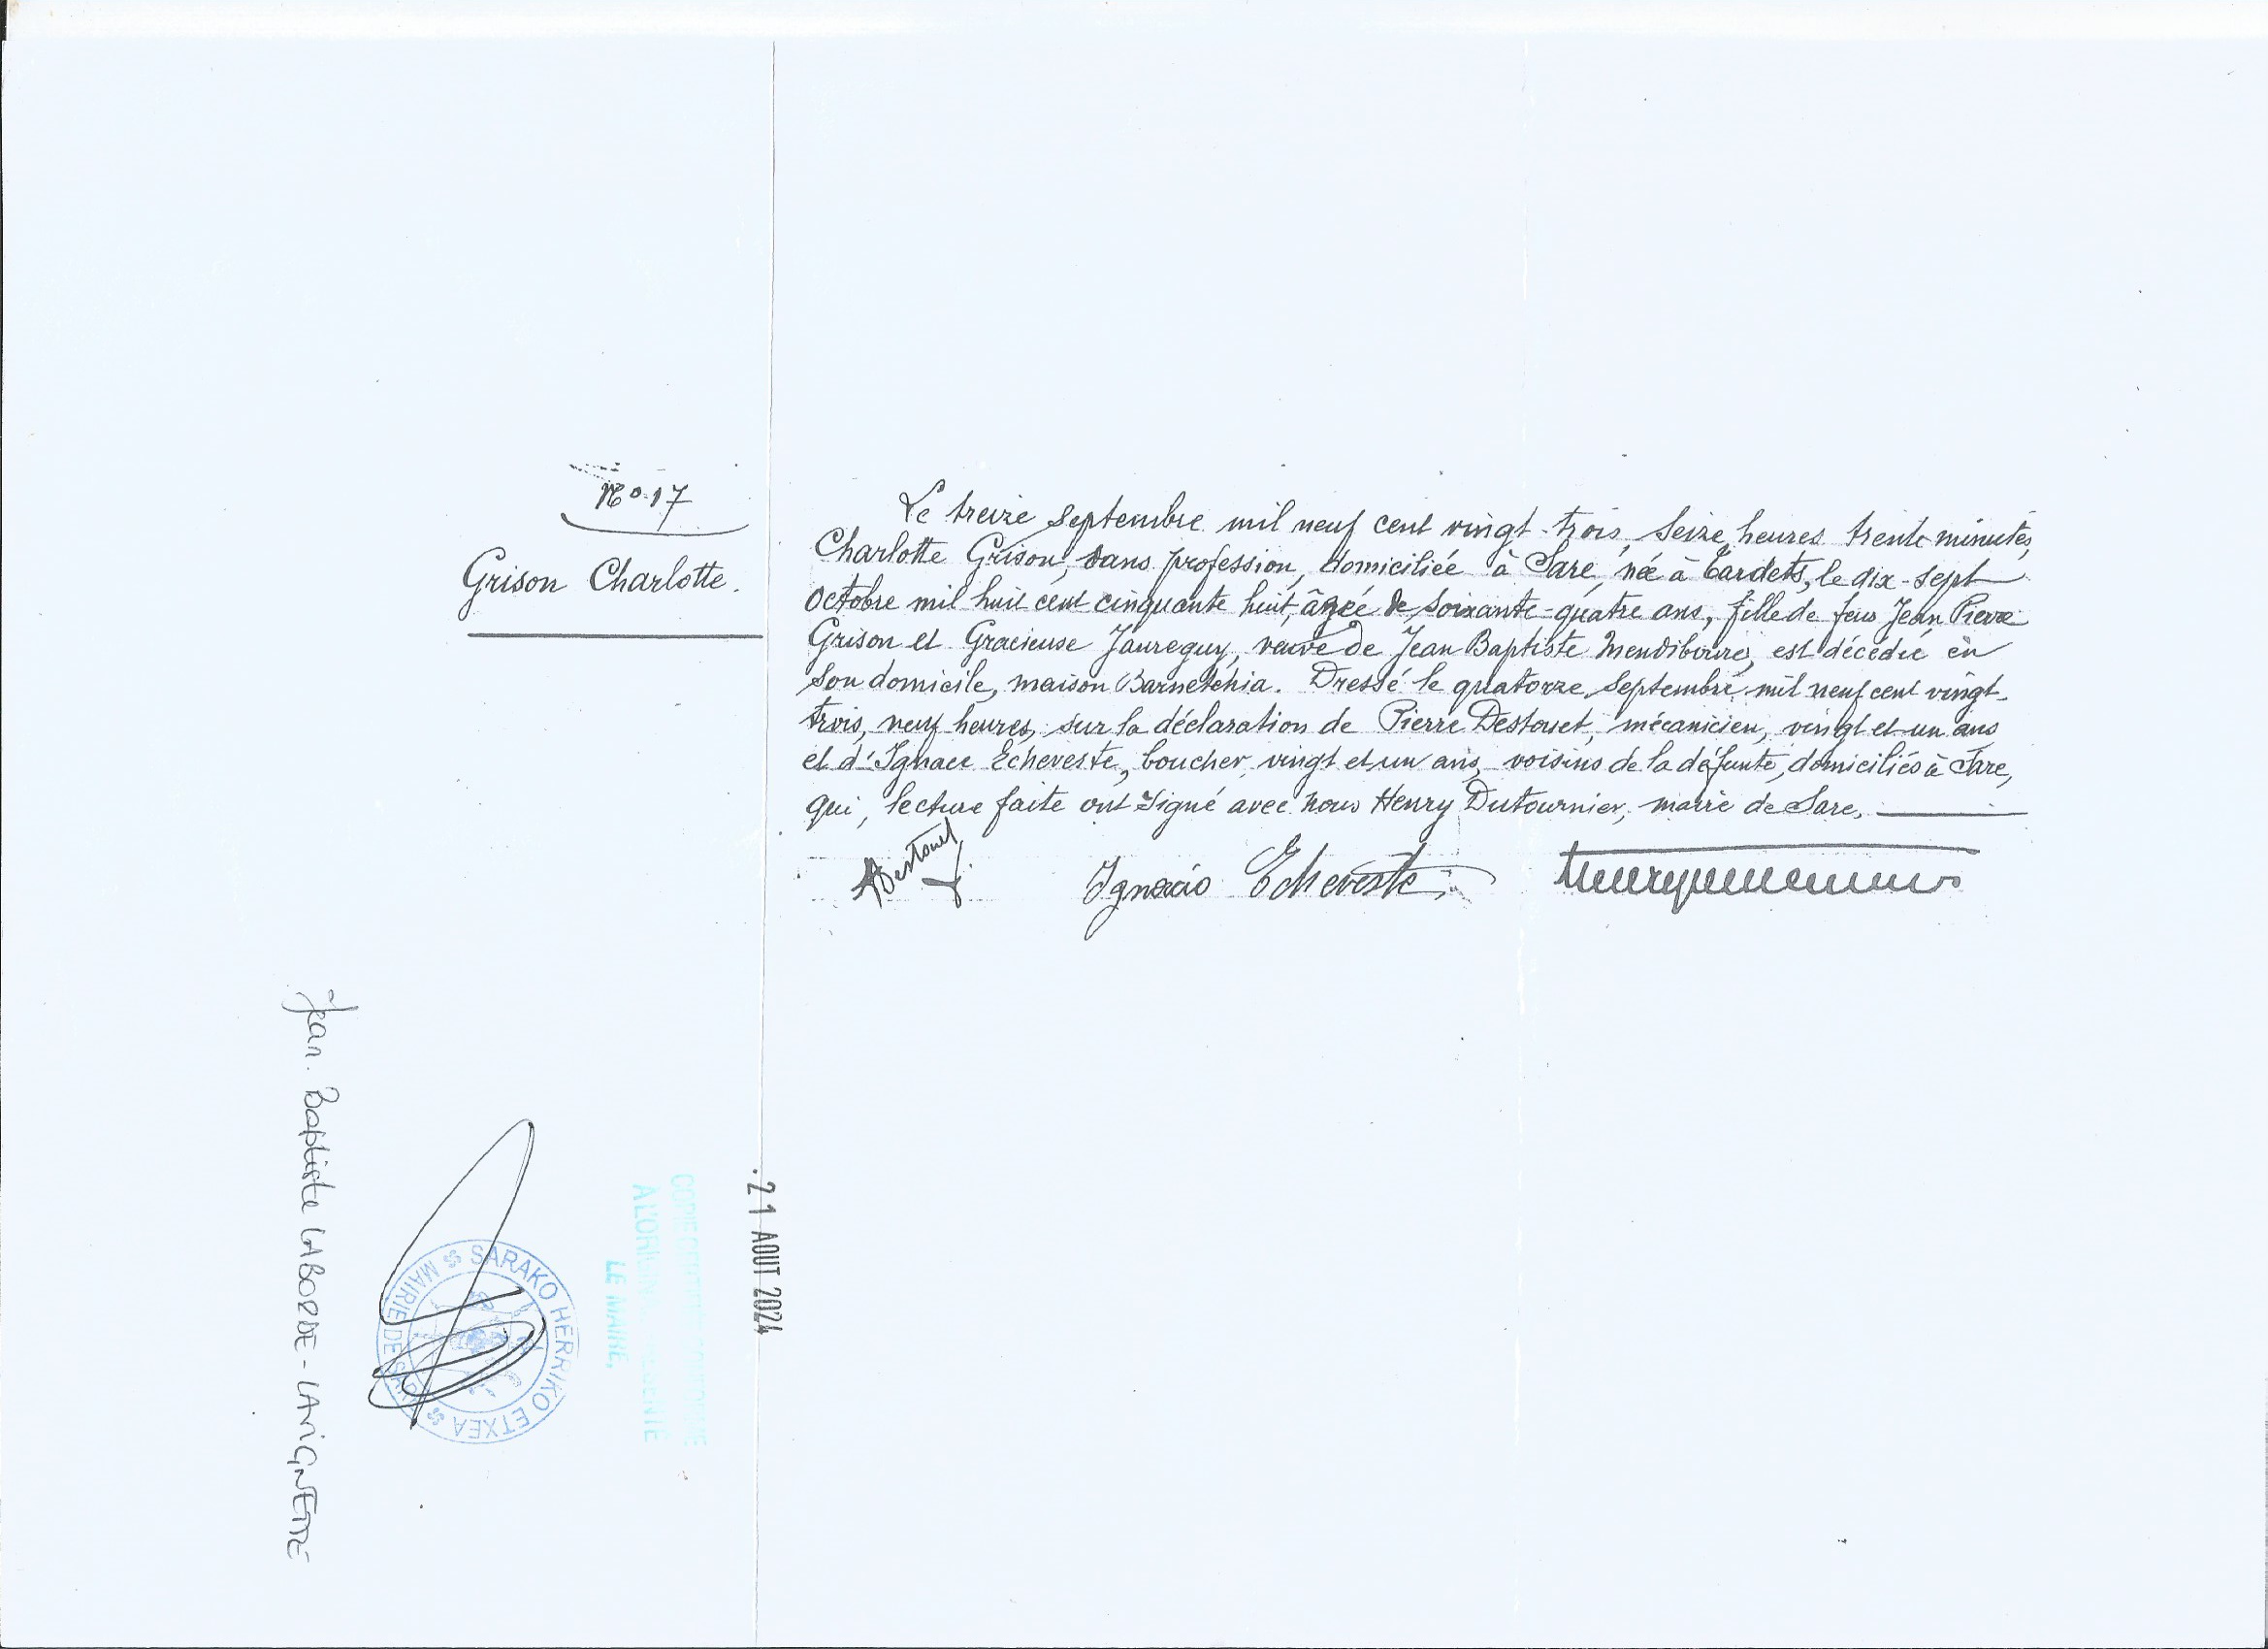 No 17
Grison Charlotte.
Le treize Septembre mil neuf cent vingt-trois, seize heures trente minutes,
Charlotte Grison, sans profession, domiciliée à Sare, née à Tardets, le dix-sept
Octobre mil huit cent cinquante huit, âgée de soixante-quatre ans, fille de feus Jean Pierre
Grison et Gracieuse Jaureguy, veuve de Jean Baptiste Mendiboure, est décédée en
son domicile, maison Barnetchia. Dressé le quatorze Septembre mil neuf cent vingt-
trois, neuf heures, sur la déclaration de Pierre Destouet, mécanicien, vingt et un ans
et d'Ignace Echeveste, boucher, vingt et un ans, voisins de la défunte, domiciliés à Sare,
qui, lecture faite ont signé avec nous Henry Dutournier, maire de Sare.
Destouet
Ignacio Echeveste
21 AOUT 2024
COPIE CERTIFIÉE CONFORME
A L'ORIGINAL PRESENTÉ
LE MAIRE,
SARAKO HERRIKO ETXEA
MAIRIE DE SARE
Jean-Baptiste LABORDE-LAVIGNETTE